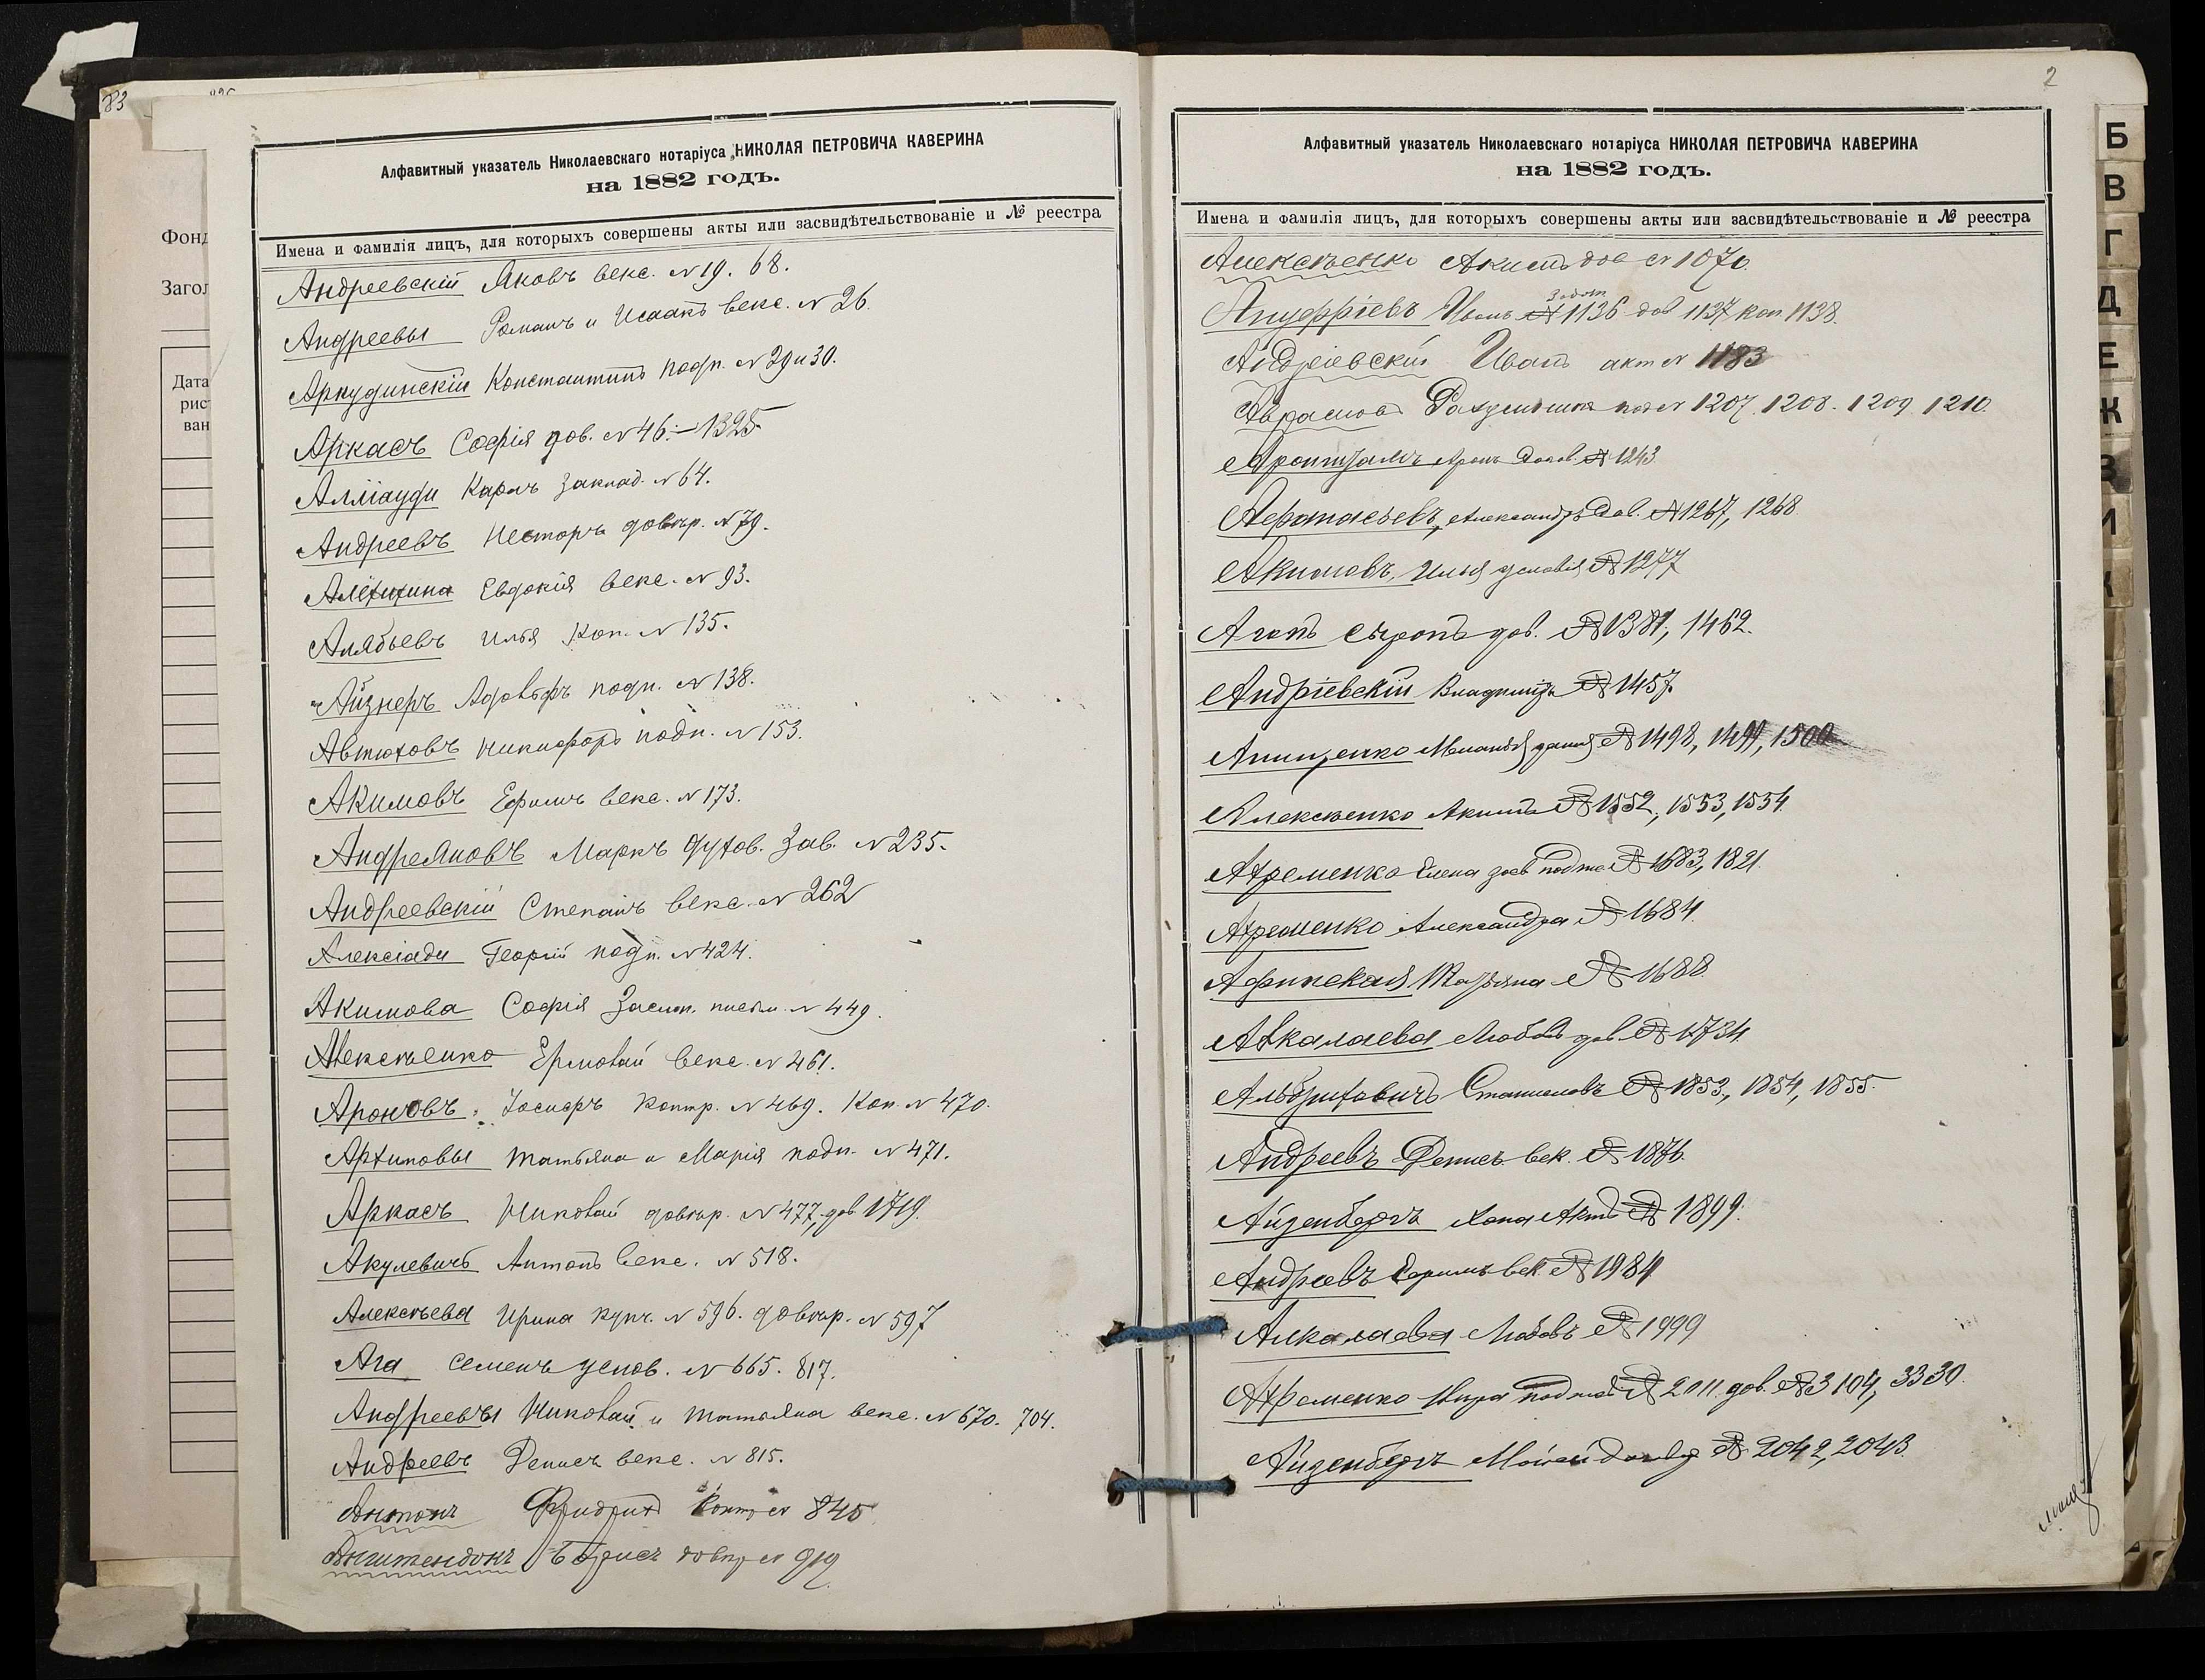 83
Фонд
Загол
Дата
рис
ван
Алфавитный указатель Николаевскаго нотаріуса НИКОЛАЯ ПЕТРОВИЧА КАВЕРИНА
на 1882 годъ.
Имена и фамилія лицъ, для которыхъ совершены акты или засвидѣтельствованіе и № реестра
Андреевскій Яковъ векс. № 19. 68.
Андреевы Романъ и Исаакъ векс. № 26.
Аркудинскій Константинъ подп. № 29 и 30.
Аркасъ Софія дов. № 46. – 1325
Алліауди Карлъ заклад. № 64.
Андреевъ Несторъ довѣр. № 79.
Алёхина Евдокія векс. № 93.
Алябьевъ Илья Коп. № 135.
Айзнеръ Адольфъ подп. № 138.
Автюховъ Никифоръ подп. № 153.
Акимовъ Ефимъ векс. № 173.
Андреяновъ Маркъ духов. зав. № 235.
Андреевскій Степанъ векс. № 262
Алексіади Георгій подп. № 424.
Акимова Софія Засвид. письм. № 449.
Алексѣенко Ермолай векс. № 461.
Ароновъ Іосифъ контр. № 469. Коп. № 470.
Архиповы Татьяна и Марія подп. № 471.
Аркасъ Николай довѣр. № 477, дов 1719.
Акулевичъ Антонъ векс. № 518.
Алексѣева Ирина купч. № 596. довѣр. № 597
Ага Семенъ услов. № 665. 817.
Андреевы Николай и Татьяна векс. № 670. 704.
Андреевъ Денисъ векс. № 815.
Антонъ Фридрихъ Контр № 845
Борисъ довѣр № 919
2
Алфавитный указатель Николаевскаго нотаріуса НИКОЛАЯ ПЕТРОВИЧА КАВЕРИНА
на 1882 годъ.
Имена и фамилія лицъ, для которыхъ совершены акты или засвидѣтельствованіе и № реестра
Алексѣенко Акимъ дов № 1070.
Ануфріевъ Иванъ № 1136 дов 1137 коп 1138.
Андріевскій Иванъ акт № 1183
№ 1207. 1208. 1209 1210.
Аронъ Довѣ. № 1243
Афанасьевъ, Александръ Дов. № 1267, 1268
Акимовъ, Илья условія № 1277
Агопъ дов. № 1381, 1462.
Андріевскій Владиміръ № 1457.
Анищенко Меланья № 1498, 1499, 1500
Алексѣенко Акимъ № 1552, 1553, 1554
Ахременко Елена № 1683, 1821.
Ахременко Александра № 1684.
Афинская Татьяна № 1688.
Авкалаева Любовь дов. № 1734
Альбриховичъ Станиславъ № 1853, 1854, 1855.
Андреевъ Денисъ век. № 1876.
Айзенбергъ Хана Актъ № 1899.
Андреевъ век № 1984
Алкалаева Любовь № 1999
Ахременко № 2011. дов. № 3104, 3330.
Айзенбергъ Моисей № 2042, 2043.
Б
В
Г
Д
Е
Ж
З
И
К